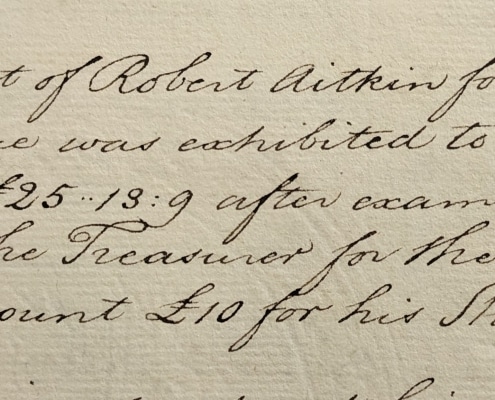 t of Robert Aitkin fo
was exhibited to
£25..13:9 after exam
he Treasurer for the
ount £10 for his Sh